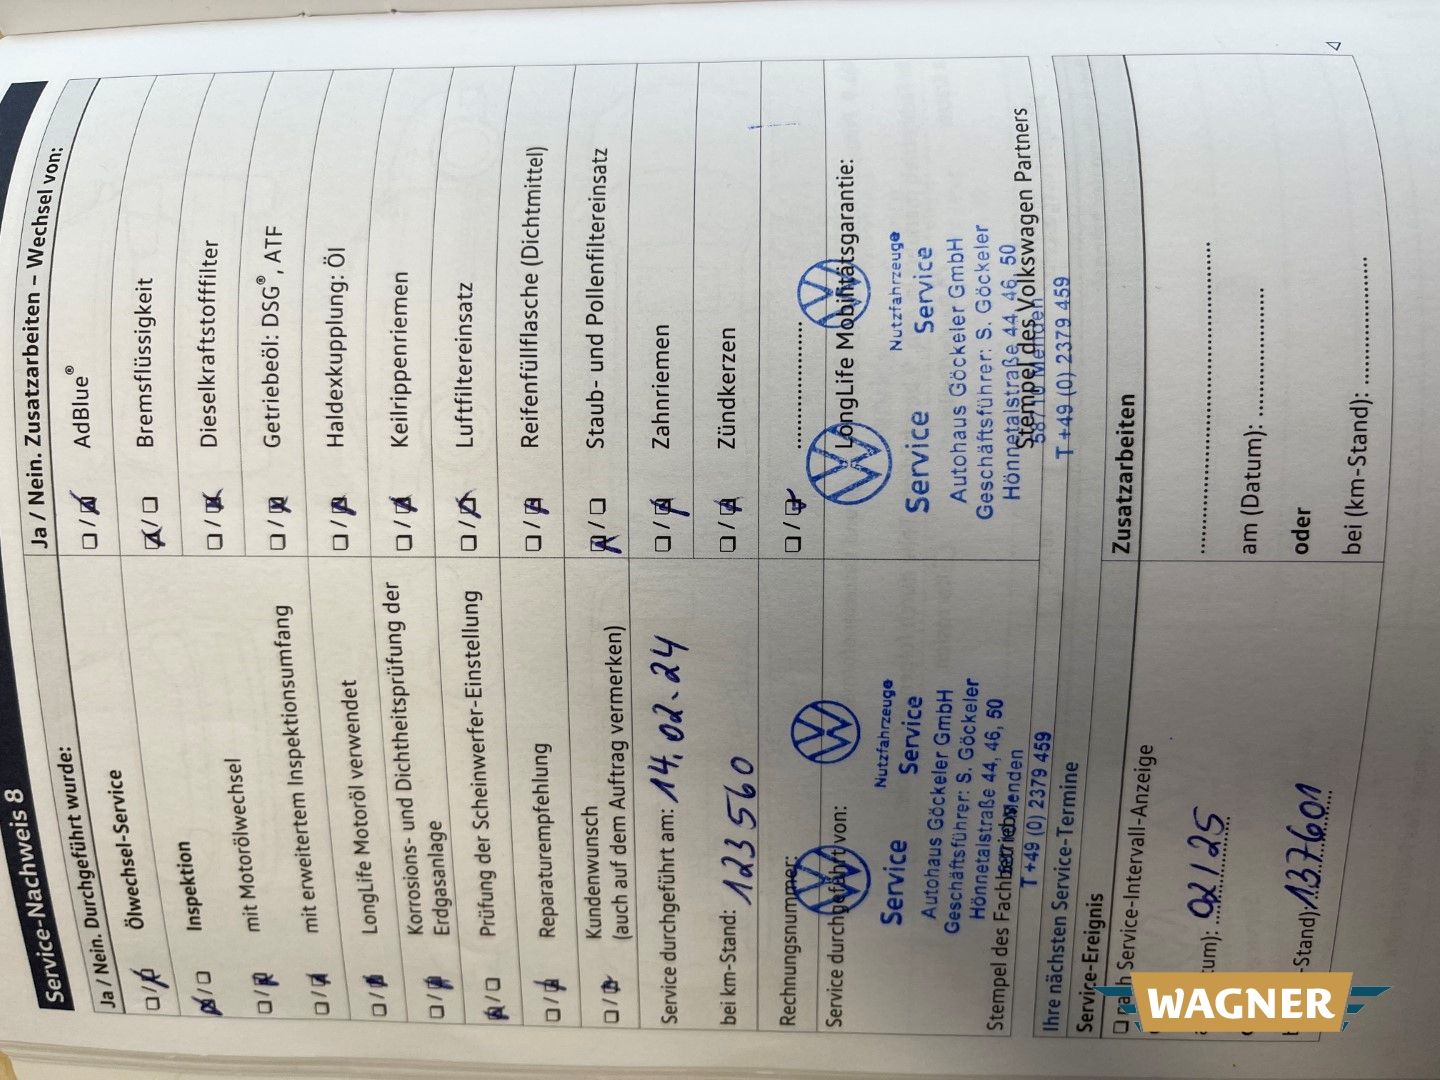 Service-Nachweis 8
Ja / Nein. Durchgeführt wurde:
☐/☒ Ölwechsel-Service
☒/☐ Inspektion
☐/☒ mit Motorölwechsel
☐/☒ mit erweitertem Inspektionsumfang
☐/☒ LongLife Motoröl verwendet
☐/☒ Korrosions- und Dichtheitsprüfung der
Erdgasanlage
☒/☐ Prüfung der Scheinwerfer-Einstellung
☐/☒ Reparaturempfehlung
☐/☒ Kundenwunsch
(auch auf dem Auftrag vermerken)
Service durchgeführt am: 14.02.24
bei km-Stand: 123560
Rechnungsnummer:
Service durchgeführt von:
Nutzfahrzeuge
Service Service
Autohaus Göckeler GmbH
Geschäftsführer: S. Göckeler
Hönnetalstraße 44, 46, 50
Stempel des Fachbetriebs
T +49 (0) 2379 459
Ja / Nein. Zusatzarbeiten – Wechsel von:
☐/☒ AdBlue®
☒/☐ Bremsflüssigkeit
☐/☒ Dieselkraftstofffilter
☐/☒ Getriebeöl: DSG®, ATF
☐/☒ Haldexkupplung: Öl
☐/☒ Keilrippenriemen
☐/☒ Luftfiltereinsatz
☐/☒ Reifenfüllflasche (Dichtmittel)
☒/☐ Staub- und Pollenfiltereinsatz
☐/☒ Zahnriemen
☐/☒ Zündkerzen
☐/☒
LongLife Mobilitätsgarantie:
Nutzfahrzeuge
Service Service
Autohaus Göckeler GmbH
Geschäftsführer: S. Göckeler
Hönnetalstraße 44, 46, 50
58710 Menden
Stempel des Volkswagen Partners
T +49 (0) 2379 459
Ihre nächsten Service-Termine
Service-Ereignis
☐ nach Service-Intervall-Anzeige
tum): 02/25
-Stand): 137601
Zusatzarbeiten
am (Datum):
oder
bei (km-Stand):
WAGNER